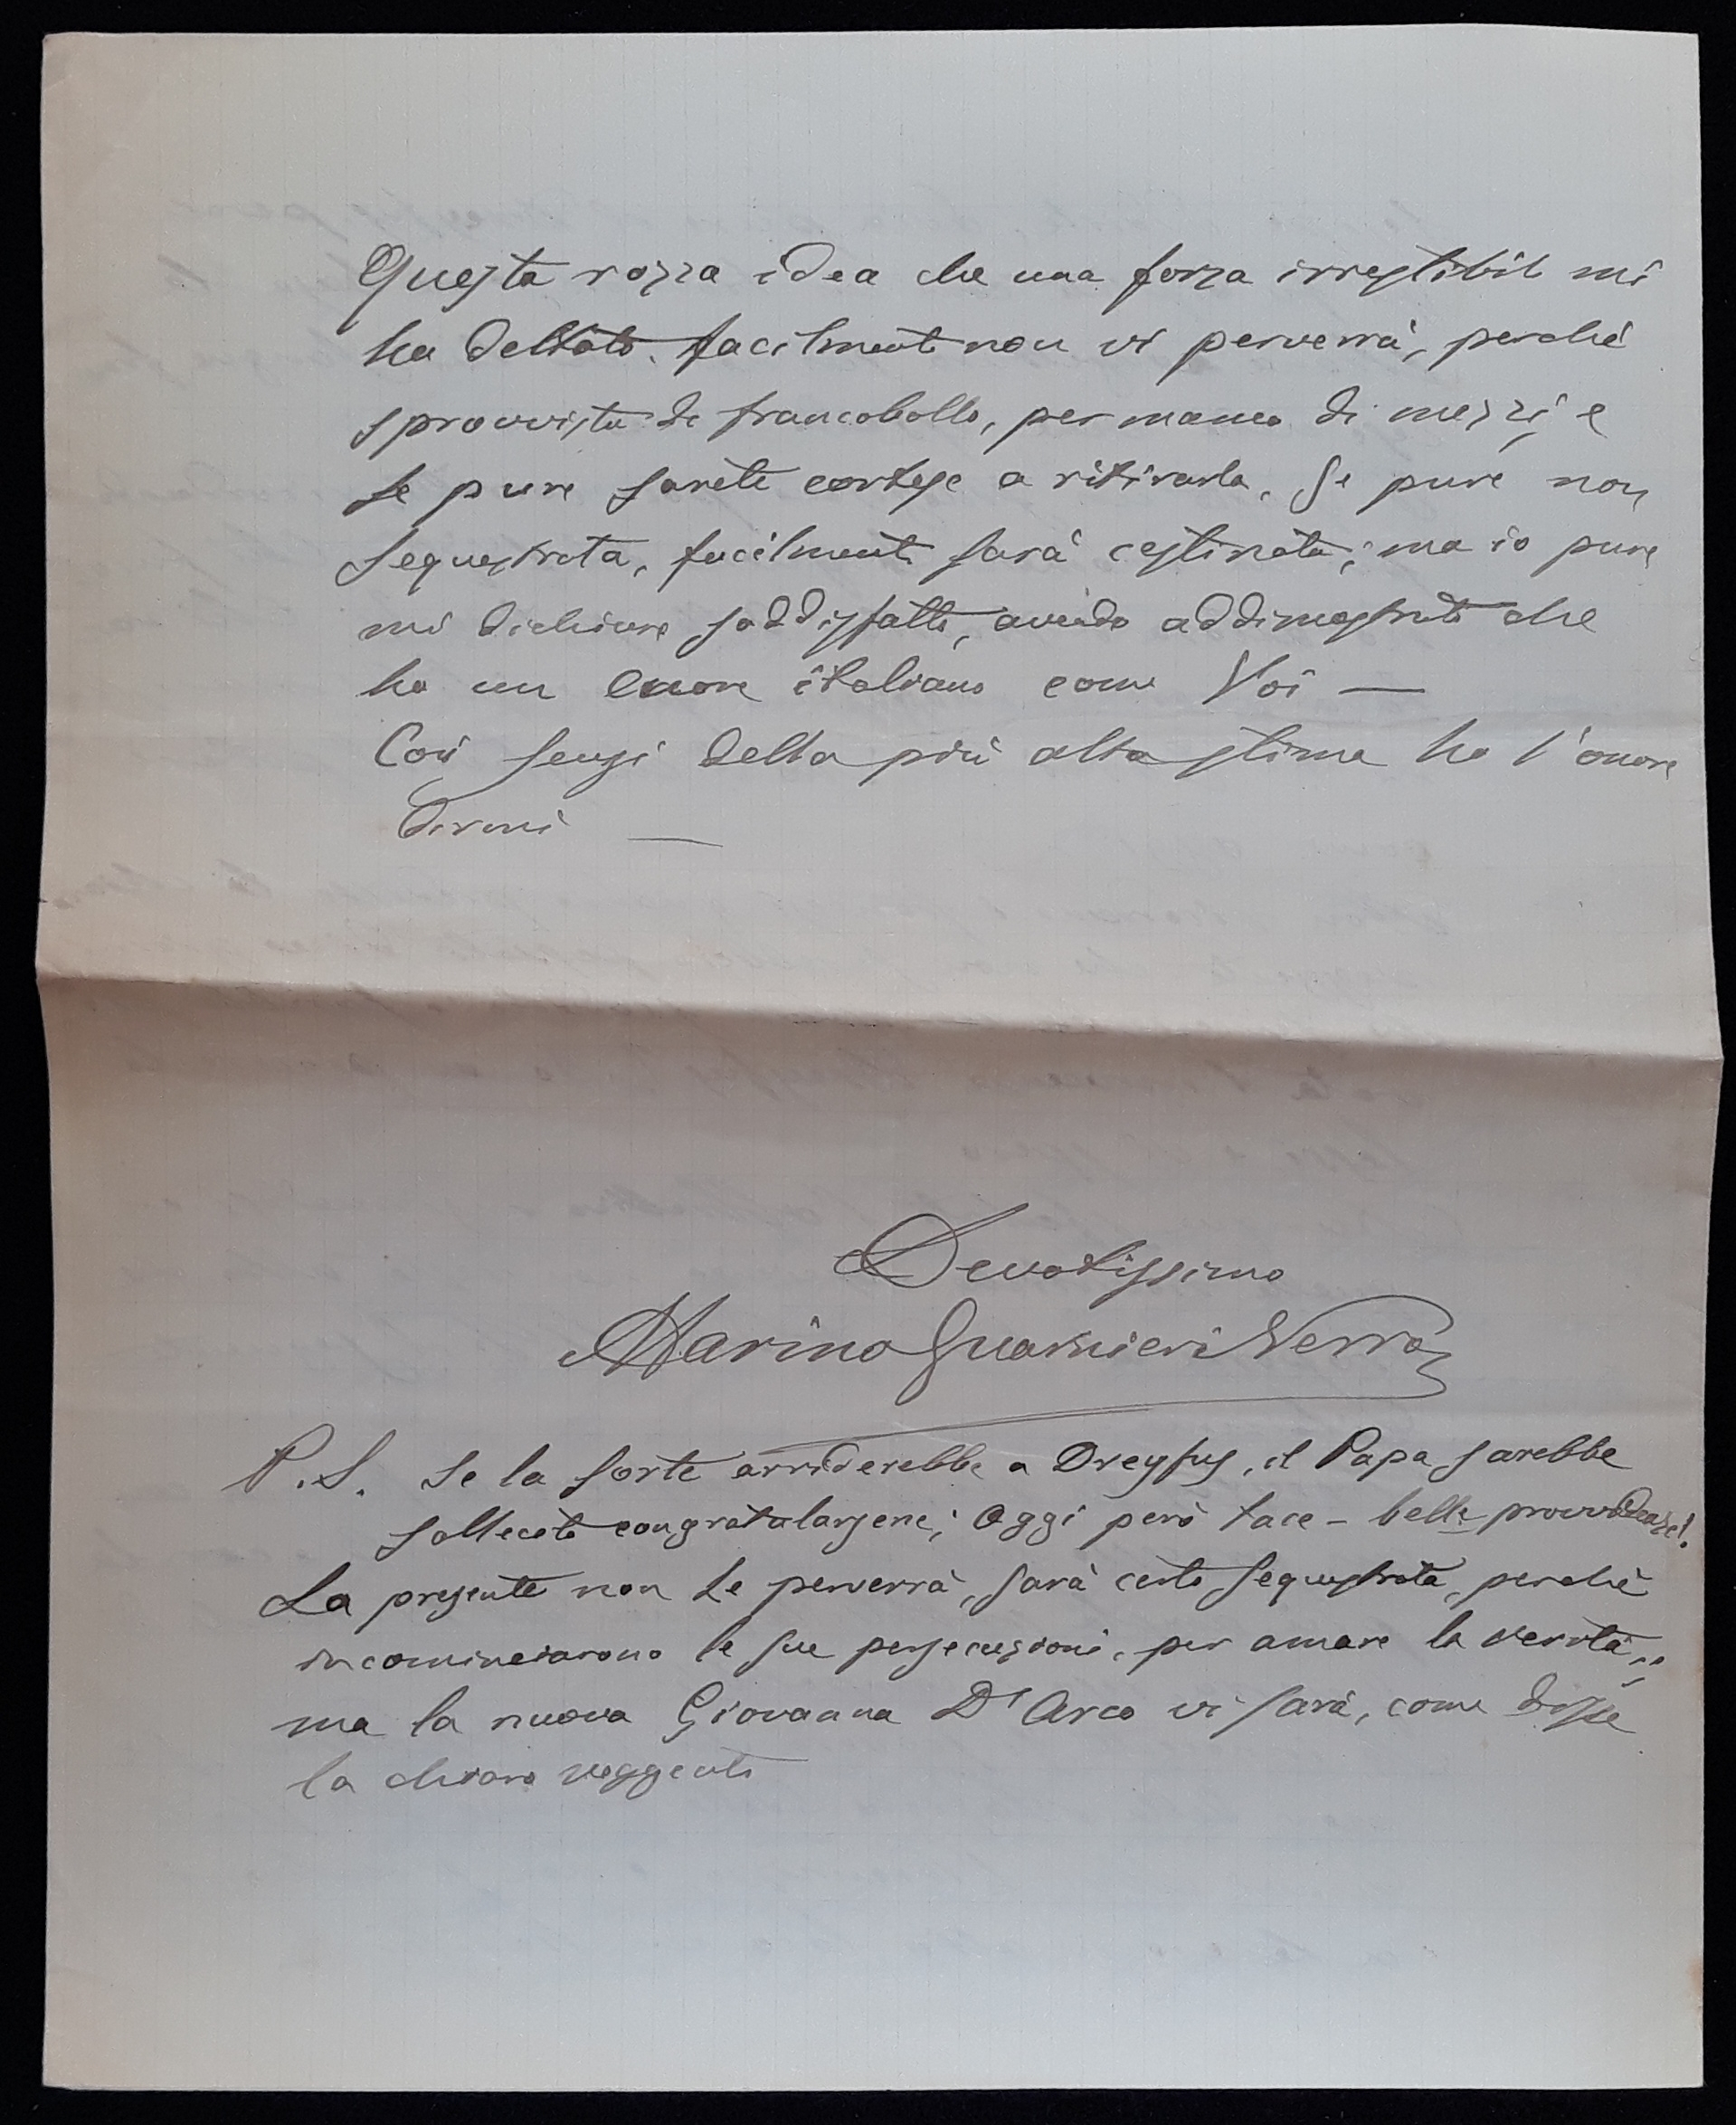 Questa rozza idea che una forza irrestibile mi
ha dettato, facilmente non vi perverrà, perchè
sprovvista di francobollo, per manco di mezzi, e
se pure sarete cortese a ritirarla. Se pure non
sequestrata, facilmente sarà cestinata; ma io pure
mi dichiaro soddisfatto, avendo addimostrato che
ho un cuore italiano come Voi —
Coi sensi della più alta stima ho l'onore
dirmi —
Devotissimo
Marino Guarnieri Verrà
P.S. Se la sorte arriderebbe a Dreyfus, il Papa sarebbe
sollecito congratularsene; Oggi però tace – belle provvidenze!
La presente non Le perverrà, sarà certo sequestrata, perchè
incominciarono le sue persecuzioni, per amare la verità,,
ma la nuova Giovanna D'Arco vi sarà, come disse
la chiaro veggente